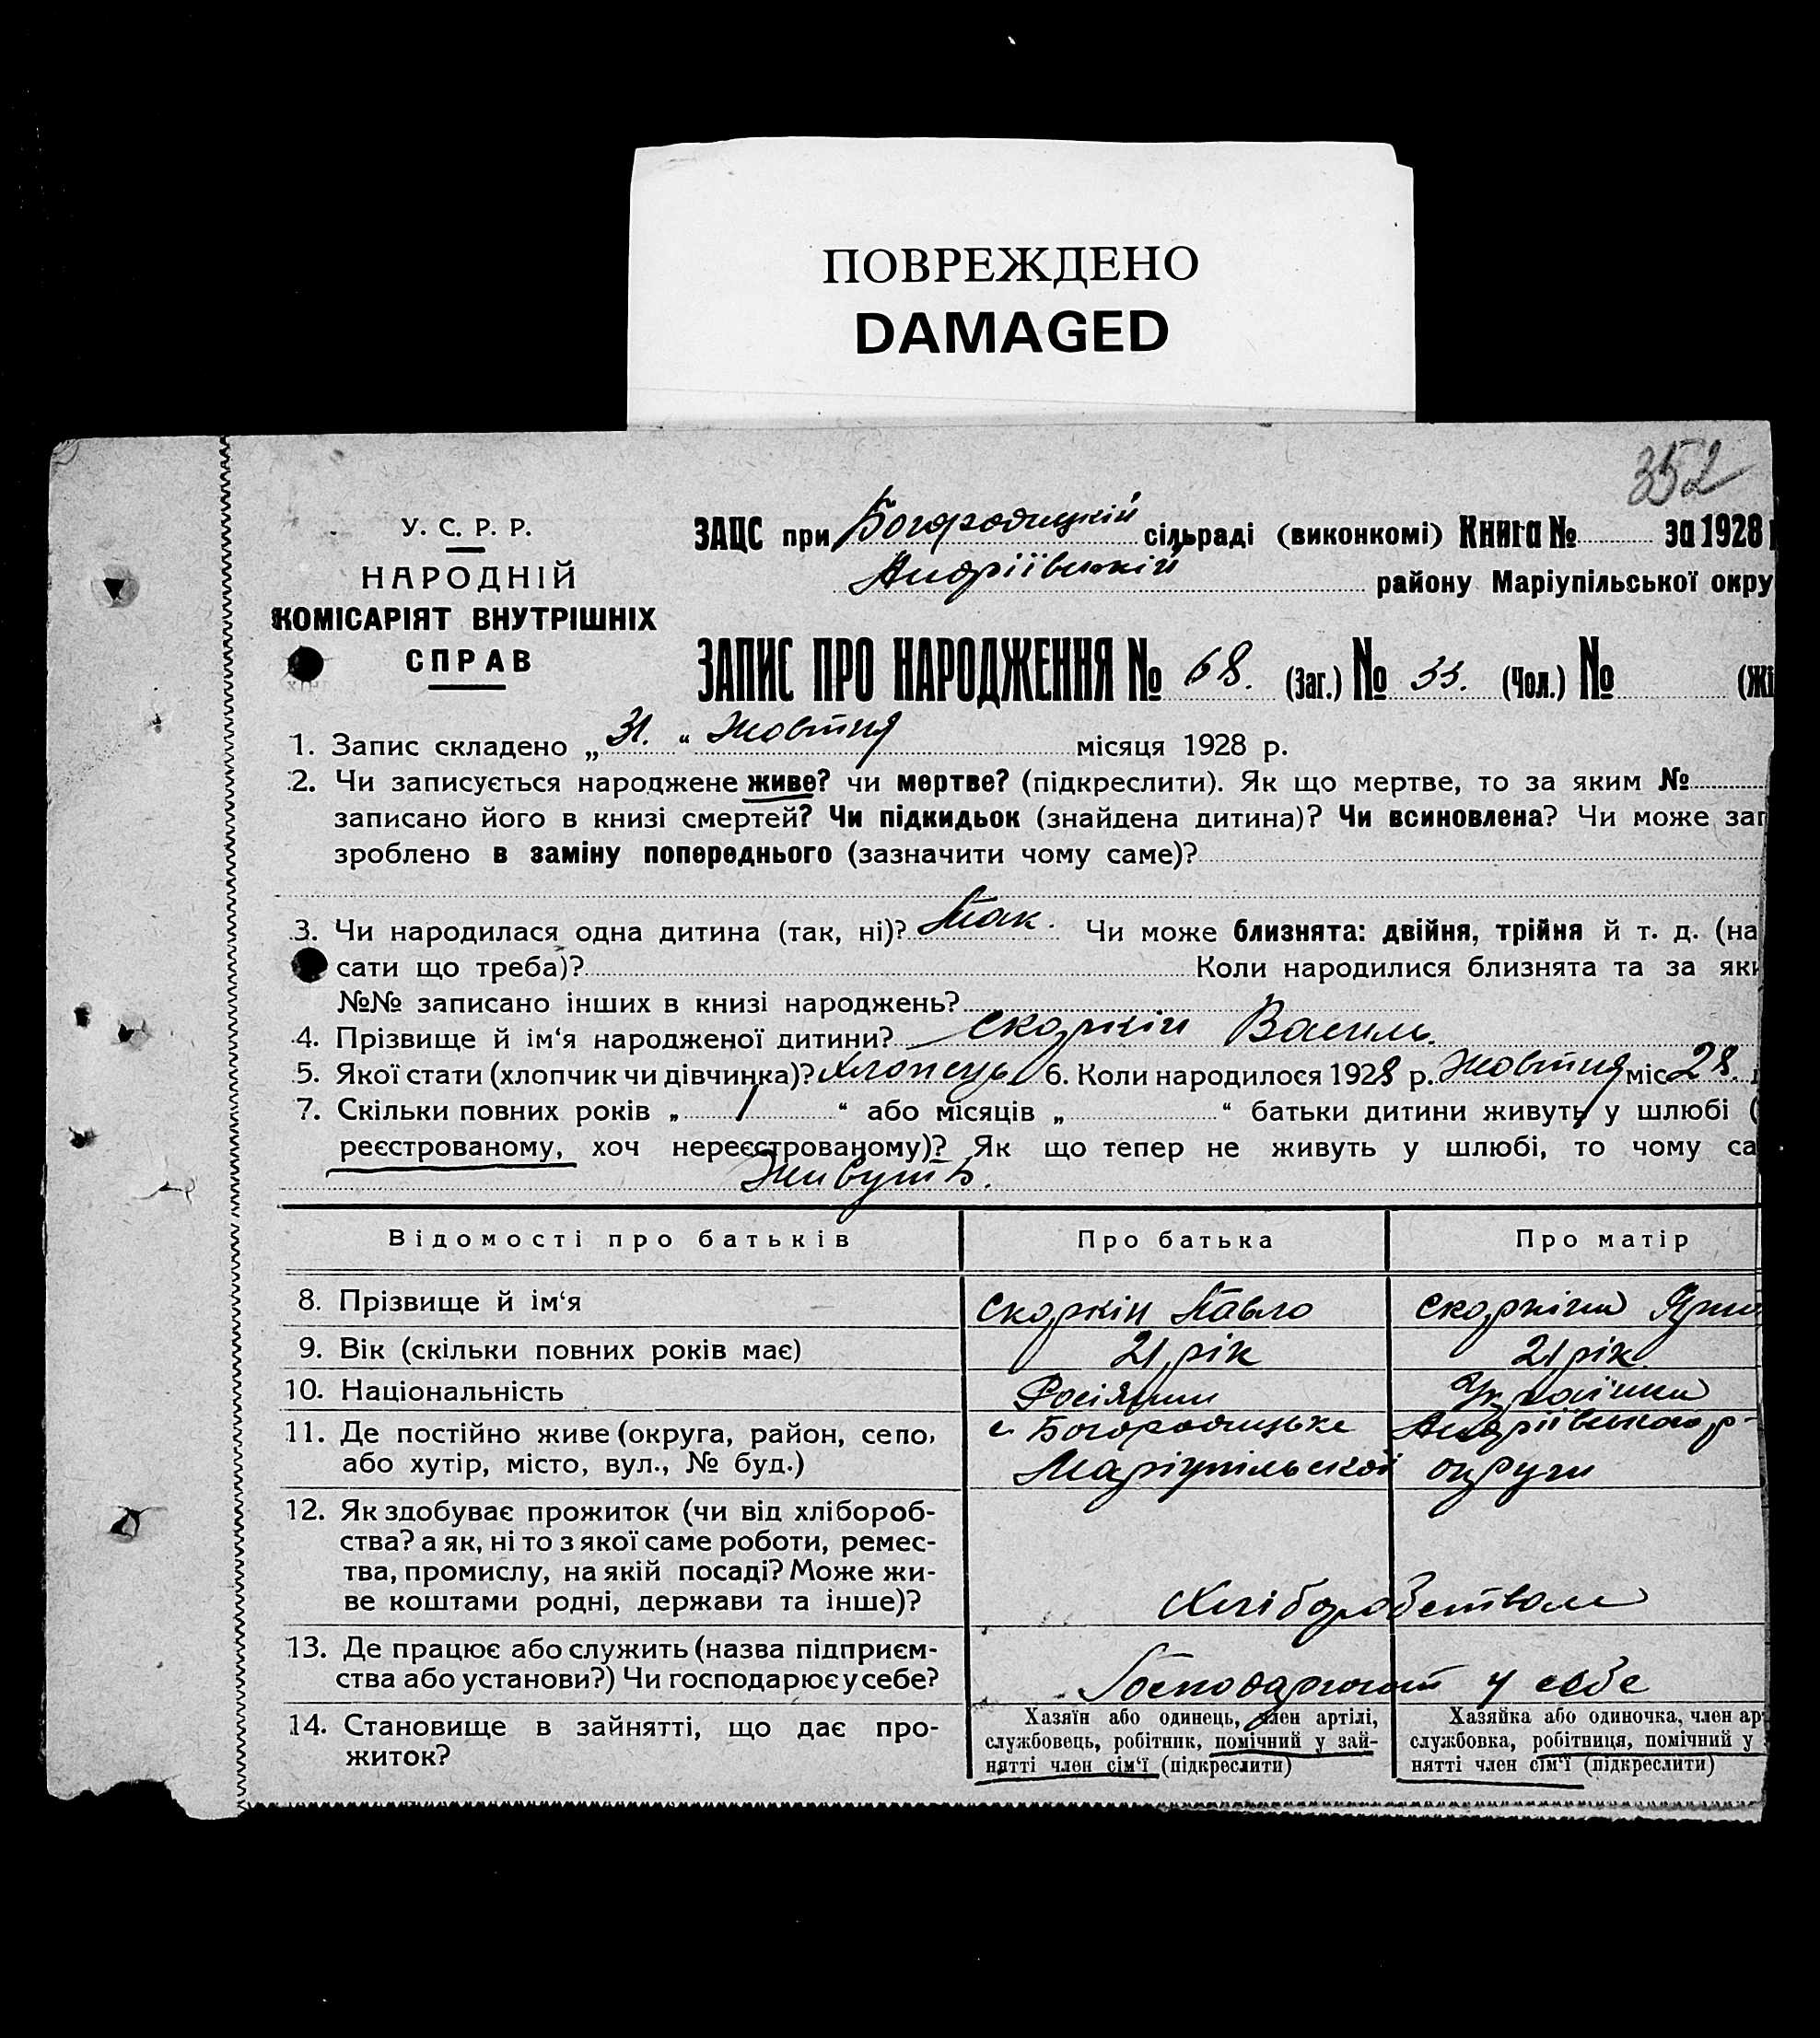 ПОВРЕЖДЕНО
DAMAGED
352
У. С. Р. Р.
НАРОДНІЙ
КОМІСАРІЯТ ВНУТРІШНІХ
СПРАВ
ЗАЦС при Богородицкій сільраді (виконкомі) Книга № за 1928
Андріївській району Маріупільської окру
ЗАПИС ПРО НАРОДЖЕННЯ № 68. (Заг.) № 33. (Чол.) № (Жі
1. Запис складено „31.“ Жовтня місяця 1928 р.
2. Чи записується народжене живе? чи мертве? (підкреслити). Як що мертве, то за яким №
записано його в книзі смертей? Чи підкидьок (знайдена дитина)? Чи всиновлена? Чи може зап
зроблено в заміну попереднього (зазначити чому саме)?
3. Чи народилася одна дитина (так, ні)? Так. Чи може близнята: двійня, трійня й т. д. (на
сати що треба)? Коли народилися близнята та за яки
№№ записано інших в книзі народжень?
4. Прізвище й ім‘я народженої дитини? Скоркін Василь.
5. Якої стати (хлопчик чи дівчинка)? Хлопець 6. Коли народилося 1928 р. Жовтня міс 28.
7. Скільки повних років „ 1 “ або місяців „ “ батьки дитини живуть у шлюбі (
реєстрованому, хоч нереєстрованому)? Як що тепер не живуть у шлюбі, то чому са
Живуть.
Відомості про батьків Про батька Про матір
8. Прізвище й ім‘я Скоркін Павло Скоркіна
9. Вік (скільки повних років має) 21 рік 21 рік
10. Національність Росіянин Українка
11. Де постійно живе (округа, район, село, с. Богородицьке Андріївського р-
або хутір, місто, вул., № буд.) Маріупільської округи
12. Як здобуває прожиток (чи від хлібороб-
ства? а як, ні то з якої саме роботи, ремес-
тва, промислу, на якій посаді? Може жи-
ве коштами родні, держави та інше)? Хліборобством
13. Де працює або служить (назва підприєм-
ства або установи?) Чи господарює у себе? Господарюют у себе
14. Становище в зайнятті, що дає про-
житок?
Хазяїн або одинець, член артілі,
службовець, робітник, помічний у зай-
нятті член сім‘ї (підкреслити)
Хазяйка або одиночка, член ар
службовка, робітниця, помічний у
нятті член сім‘ї (підкреслити)